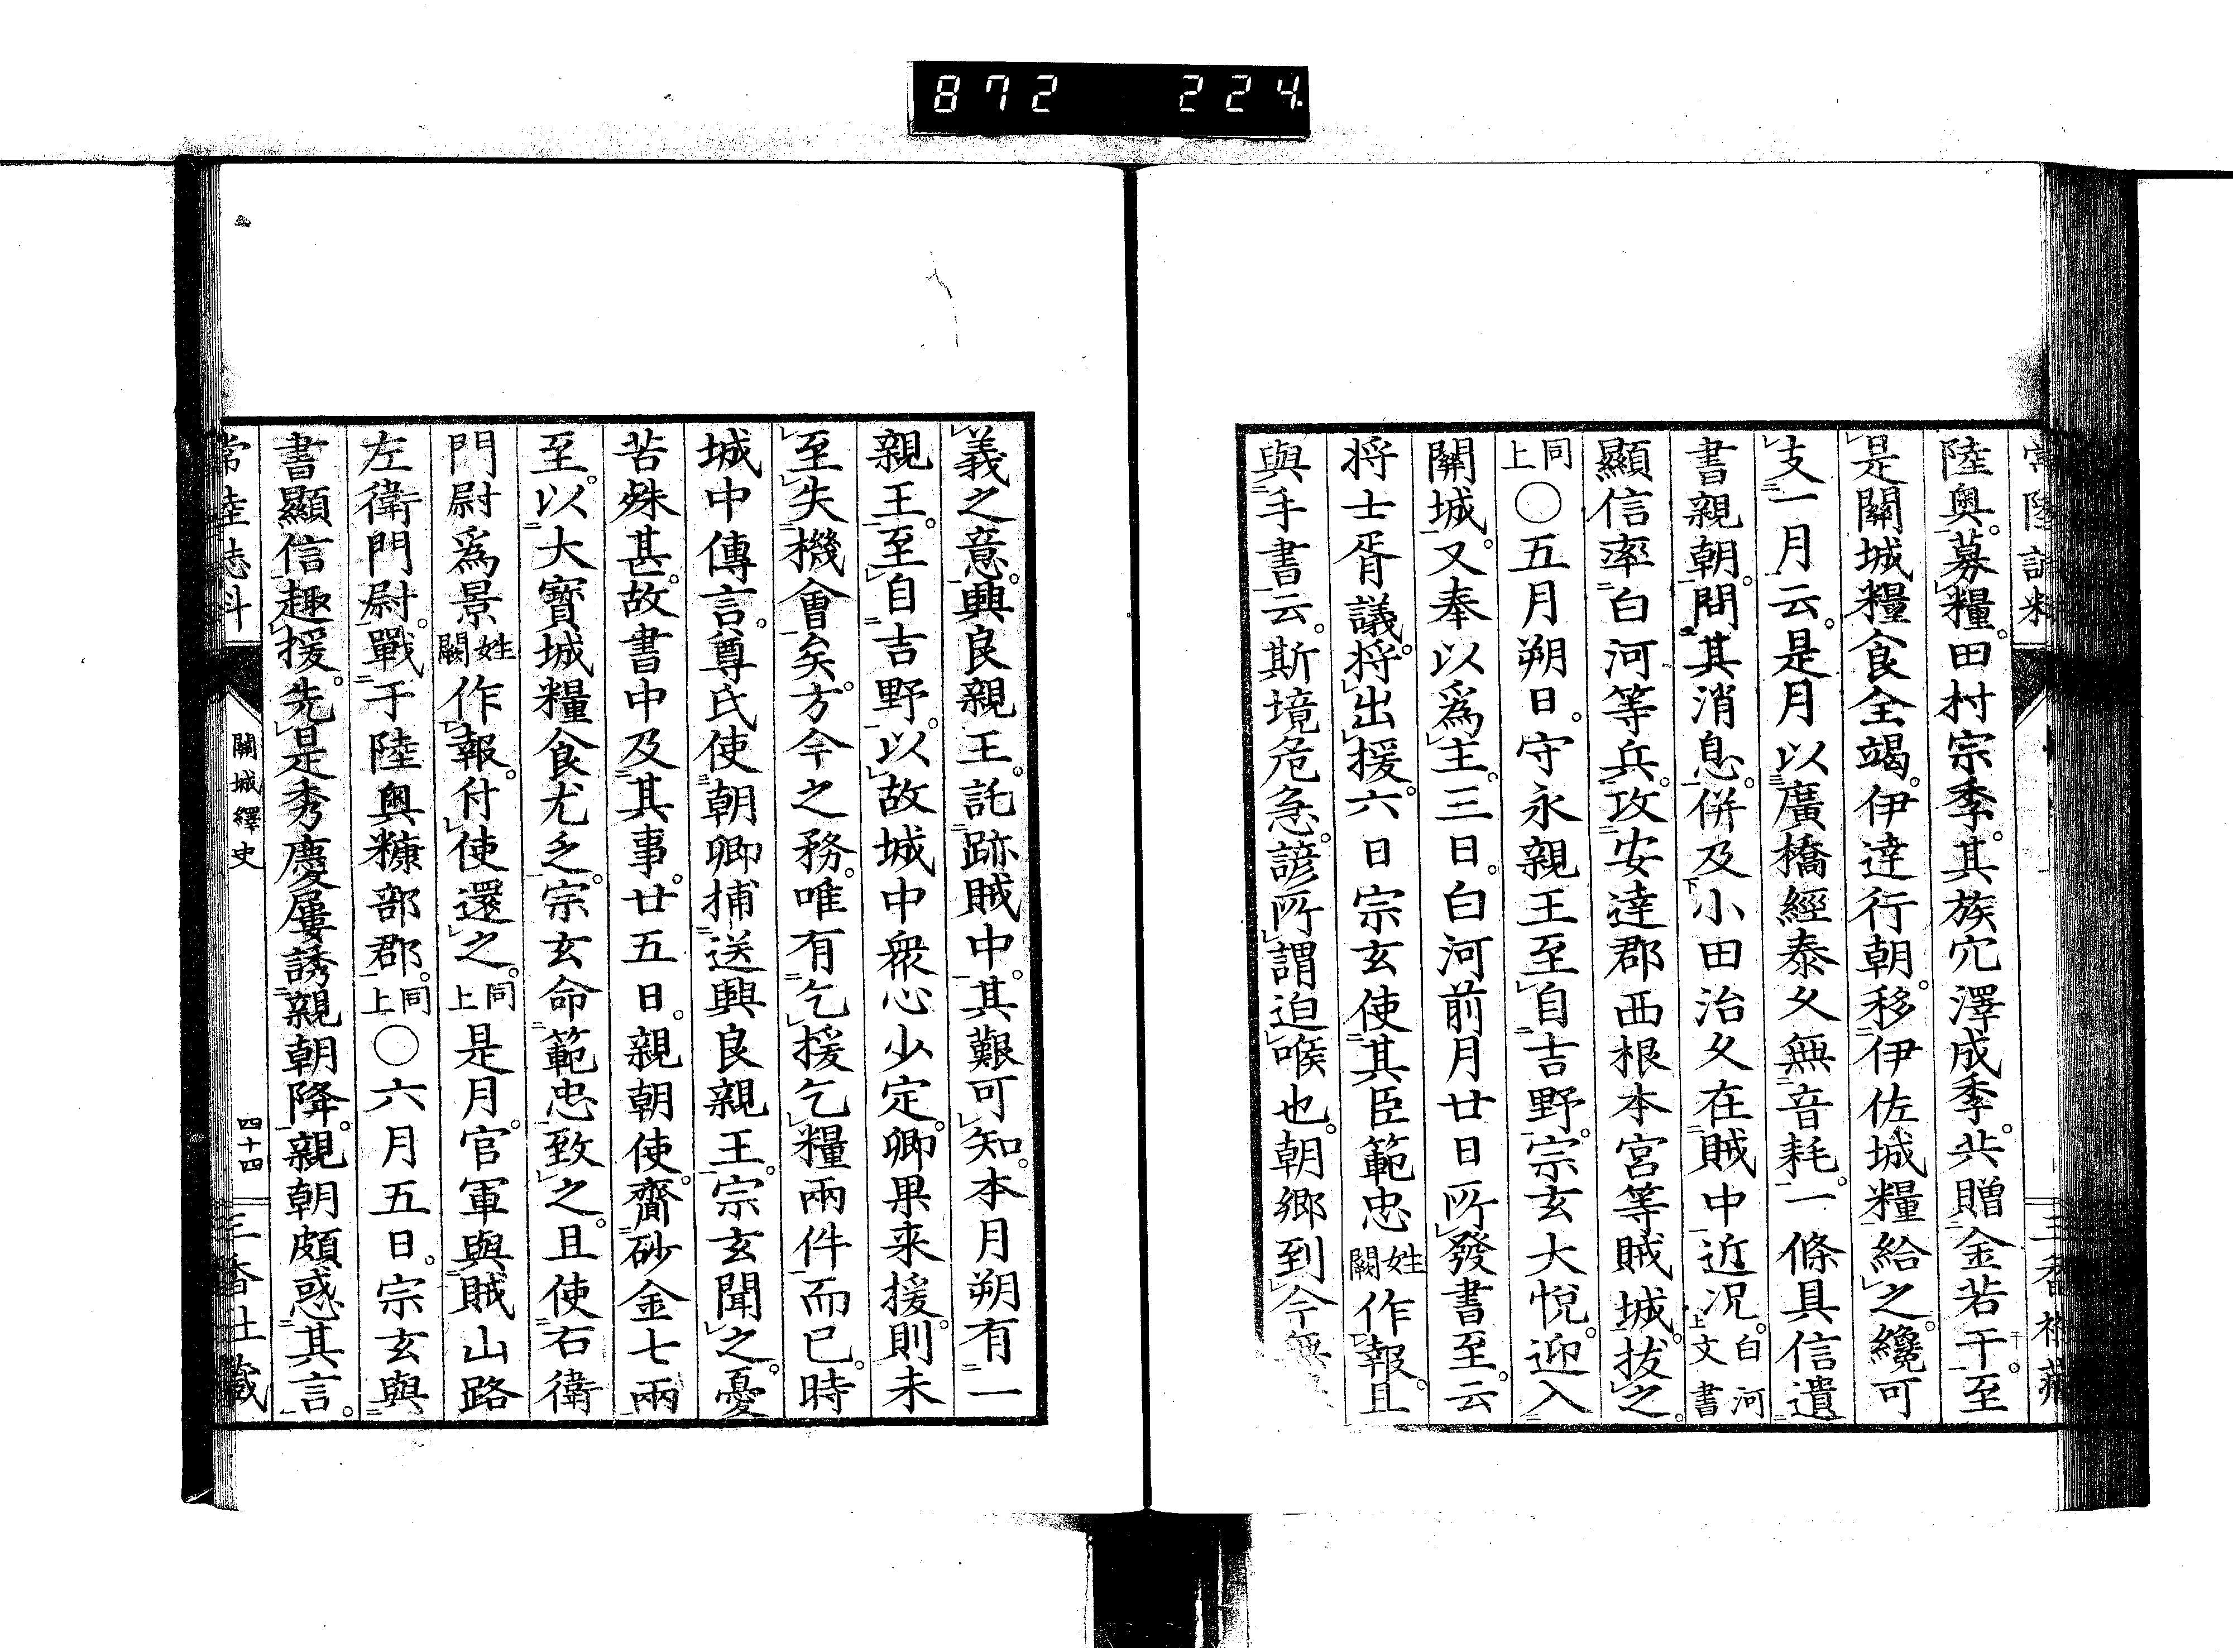 872 224.
陸奥。募糧。田村宗季。其族穴澤成季。共贈金若干。至
是關城糧食全竭。伊達行朝。移伊佐城糧給之。纔可
支一月云。是月以廣橋經泰久無音耗。一條具信遺
書親朝。問其消息。併及小田治久在賊中近況。白河
上文書
顯信率白河等兵。攻安達郡西根本宮等賊城。拔之。
同上○五月朔日。守永親王至自吉野。宗玄大悅。迎入
關城。又奉以爲主。三日。白河前月廿日所發書至。云
將士胥議將出援。六日宗玄使其臣範忠姓闕作報。且
與手書云。斯境危急。諺所謂迫喉也。朝鄉到今無
義之意。興良親王。託跡賊中。其艱可知。本月朔有一
親王。至自吉野。以故城中衆心少定。卿果來援。則未
至失機會矣。方今之務。唯有乞援乞糧兩件而已。時
城中傳言。尊氏使朝卿捕送興良親王。宗玄聞之。憂
苦殊甚。故書中及其事。廿五日。親朝使齎砂金七兩
至。以大寶城糧食尤乏。宗玄命範忠致之。且使右衛
門尉爲景姓闕作報。付使還之。同上是月。官軍與賊山路
左衛門尉。戰于陸奥糠部郡。同上○六月五日。宗玄與
書顯信趣援。先是秀慶屢誘親朝降。親朝頗惑其言。
關城繹史
四十四